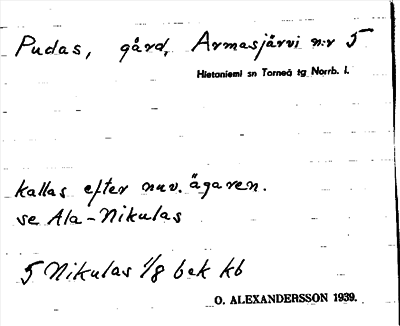 Pudas, gård, Armasjärvi n:r 5
Hietaniemi sn Torneå tg Norrb. l.
kallas efter nuv. ägaren.
se Ala-Nikulas
5 Nikulas 1/8 bek kb
O. ALEXANDERSSON 1939.